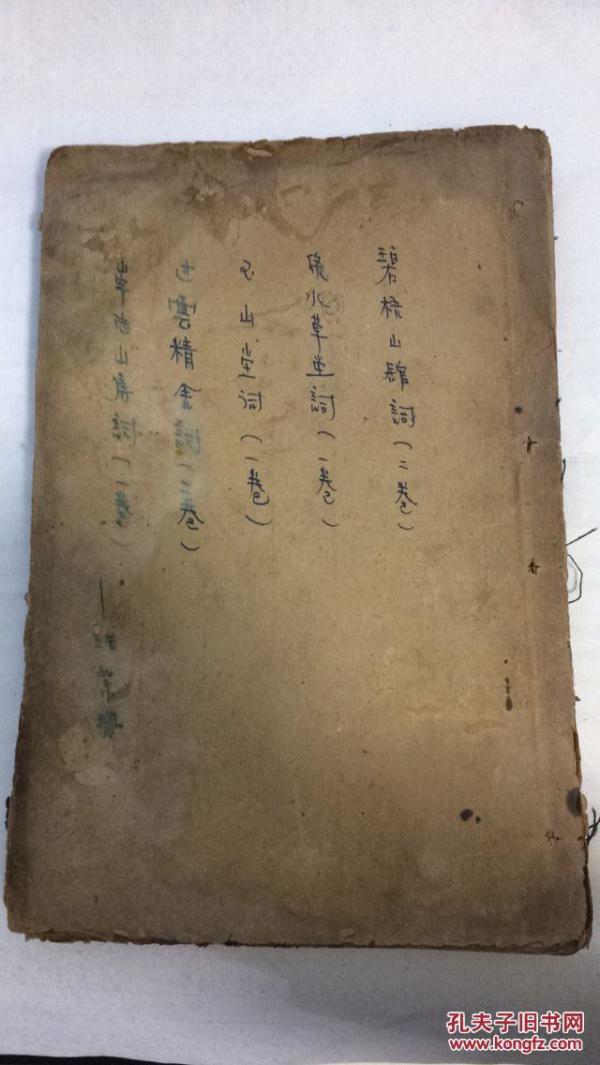 碧梧山館詞(二卷)
綠水草堂詞(一卷)
玉山堂詞(一卷)
過雲精舍詞(二卷)
山房詞(一卷)
孔夫子旧书网
www.kongfz.com